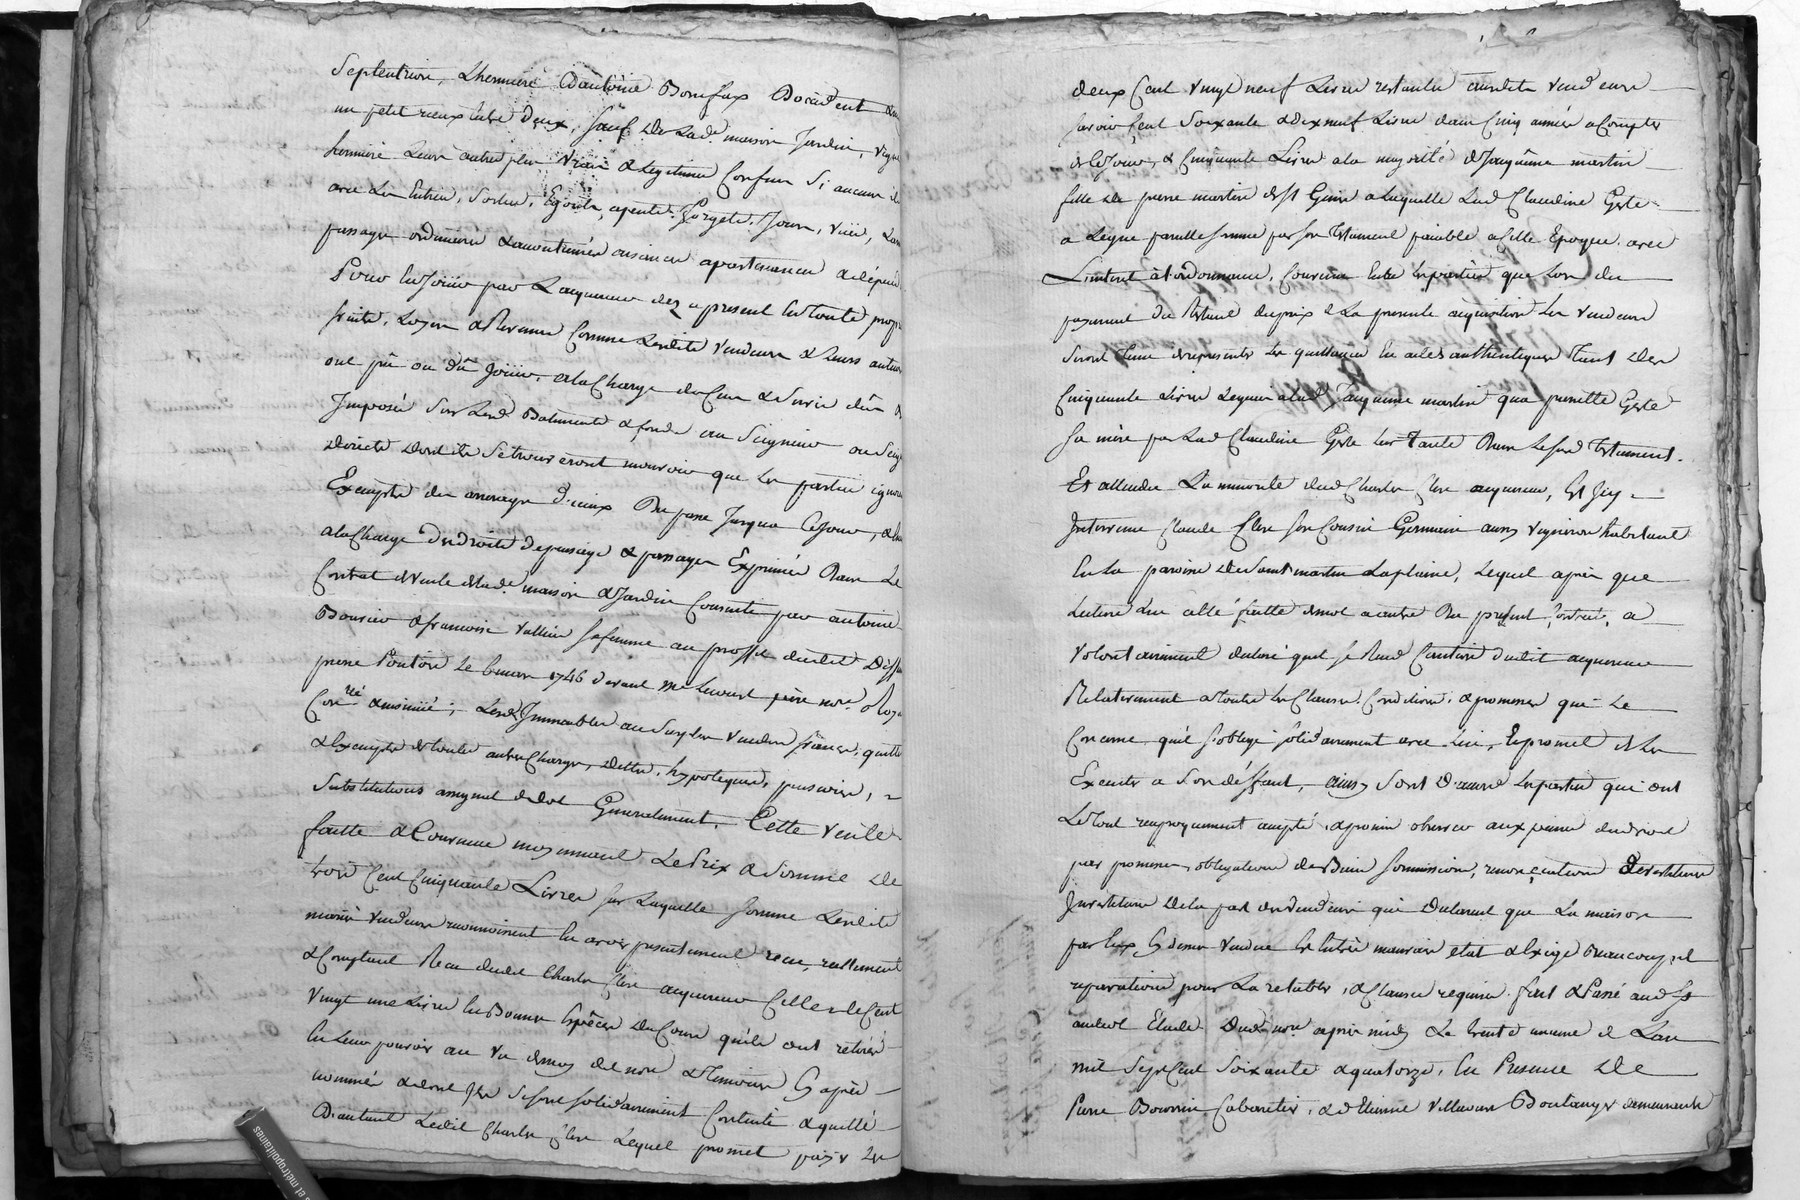 Septentrion, Lhermiere Dantoine Bonnefux Doccident
un petit ruaux entre deux, sauf de Lade. maison Jardin, vigne
hermiere Leurs autres plus vrais & Legitimes Confins Si aucuns
avec Les Entrées, Sorties, Egouts, apents, forgets, Jours, vües,
passages ordinaires & accoutumés aisances apartenances & dépend
Pour En Joüir par Lacquereur dez a present En toute prop
fruits, Loyers & Revenus Comme Lesdits Vendeurs & Leurs auteurs
ont pû ou dû Joüir, a la Charge du Cens & Servis dûs
Imposés Sur Lesd. Batiments & fonds au Seigneur ou Seig
directs dont ils Se trouveront mouvoir que Les parties ignor
Exempts des arrerages d'iceux Du passé Jusqua ce Jour,
a la Charge des droits de puisage & passages Exprimés Dans Le
Contrat de vente de lade. maison & Jardin Consenti par antoine
Boursier & francoise Vallein sa femme au proffit dudit
pierre Ponton Le 6 mars 1746 devant Me père nore. Roya
Conrée & insinüé; Lesd. Immeubles au Surplus Vendus francs, quittes
& Exempts de toutes autres Charges, dettes, hypoteques, pensions,
Substitutions augment de dot Generalement. Cette vente
faitte & Convenue moyennant Le Prix & Somme de
trois Cent Cinquante Livres sur Laquelle Somme Lesdits
mariés vendeurs reconnoissent En avoir presentement reçu, reellement
& Comptant Reçu dudit Charles acquereur Celle de Cent
Vingt une Livre En Bonnes Espèces du Cours qu'ils ont retirés
En Leur pouvoir au vu de moy dit nore & Temoins Cy après
nommés & dont Ils Se font solidairement Contents & quitte
D'autant Ledit Charles Lequel promet payer Les
deux Cent vingt neuf Livres restantes auxdits vendeurs
Savoir Cent Soixante & dix neuf Livres dans Cinq années a Compter
de ce Jour, & Cinquante Livres a la majorité de Jacquême martin
fille de pierre martin de St Genis a Laquelle Lad Claudine Giste
a Legué pareille somme par son testament païable a Cette Epoque. avec
L'interet à l'ordonnance, Convenu Entre Les parties que Lors du
payement du Restant du prix de La presente acquisition Les vendeurs
Seront tenus de representer Les quittances En actes authentiques tant des
Cinquante Livres Leguées a lad. Jacquême martin qua pierrette Giste
Sa mère par Lad Claudine Giste Leur Tante Dans Le susd testament.
Et attendu La minorité dud Charles acquereur, Est Icy
Intervenu Claude Son Cousin Germain aussy vigneron habitant
En La paroisse de Saint martin Laplaine, Lequel après que
Lecture Lui a été faitte de mot a autre Du present Contrat, a
volontairement declaré quil se Rend Caution dudit acquereur
Relativement a toutes Les Clauses, Conditions, & promesses que Le
Concerne, qu'il s'oblige solidairement avec Lui, Et promet de Les
Executer a Son déffaut, ainsy Sont D'accord Les parties qui ont
Le tout reciproquement accepté, & promis observer aux peines de droit
par promesses, obligations de Biens soumissions, renonciations Devestiture
Investiture De la part des vendeurs qui Declarent que La maison
par Eux Cy dessus vendue Est En très mauvais état & Exige Beaucoup de
reparations pour La retablir, & Clauses requises. fait & Passé aud
Etude Dud. nore après midy Le trente unieme de Lan
mil Sept Cent Soixante & quatorze, En Presence De
Pierre Boursier Cabaretier, & d Etienne Villemure Boulanger demeurants